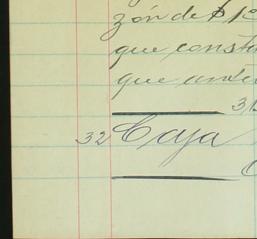 zón de $ 1
que const
que ante
31
32 Caja